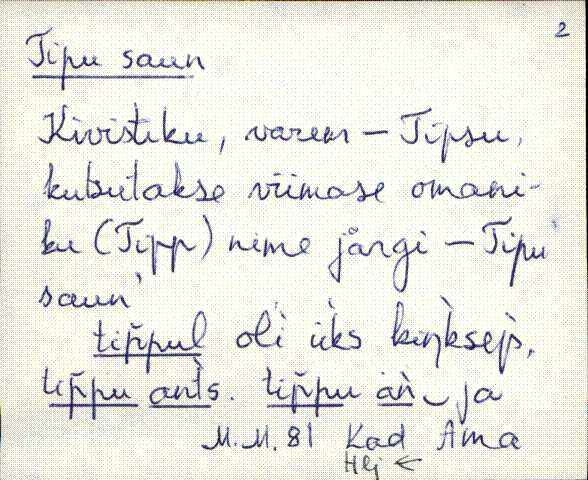 2
Tipu saun
Kivistiku, varem – Tipsu,
kutsutakse viimase omani-
ku (Tipp) nime järgi – Tipu
saun
tip̀pul oli üks kiŋksep̀,
tip̀pu ant̀s. tip̀pu añ ja
M.M. 81 Kad Ama
Hlj ←